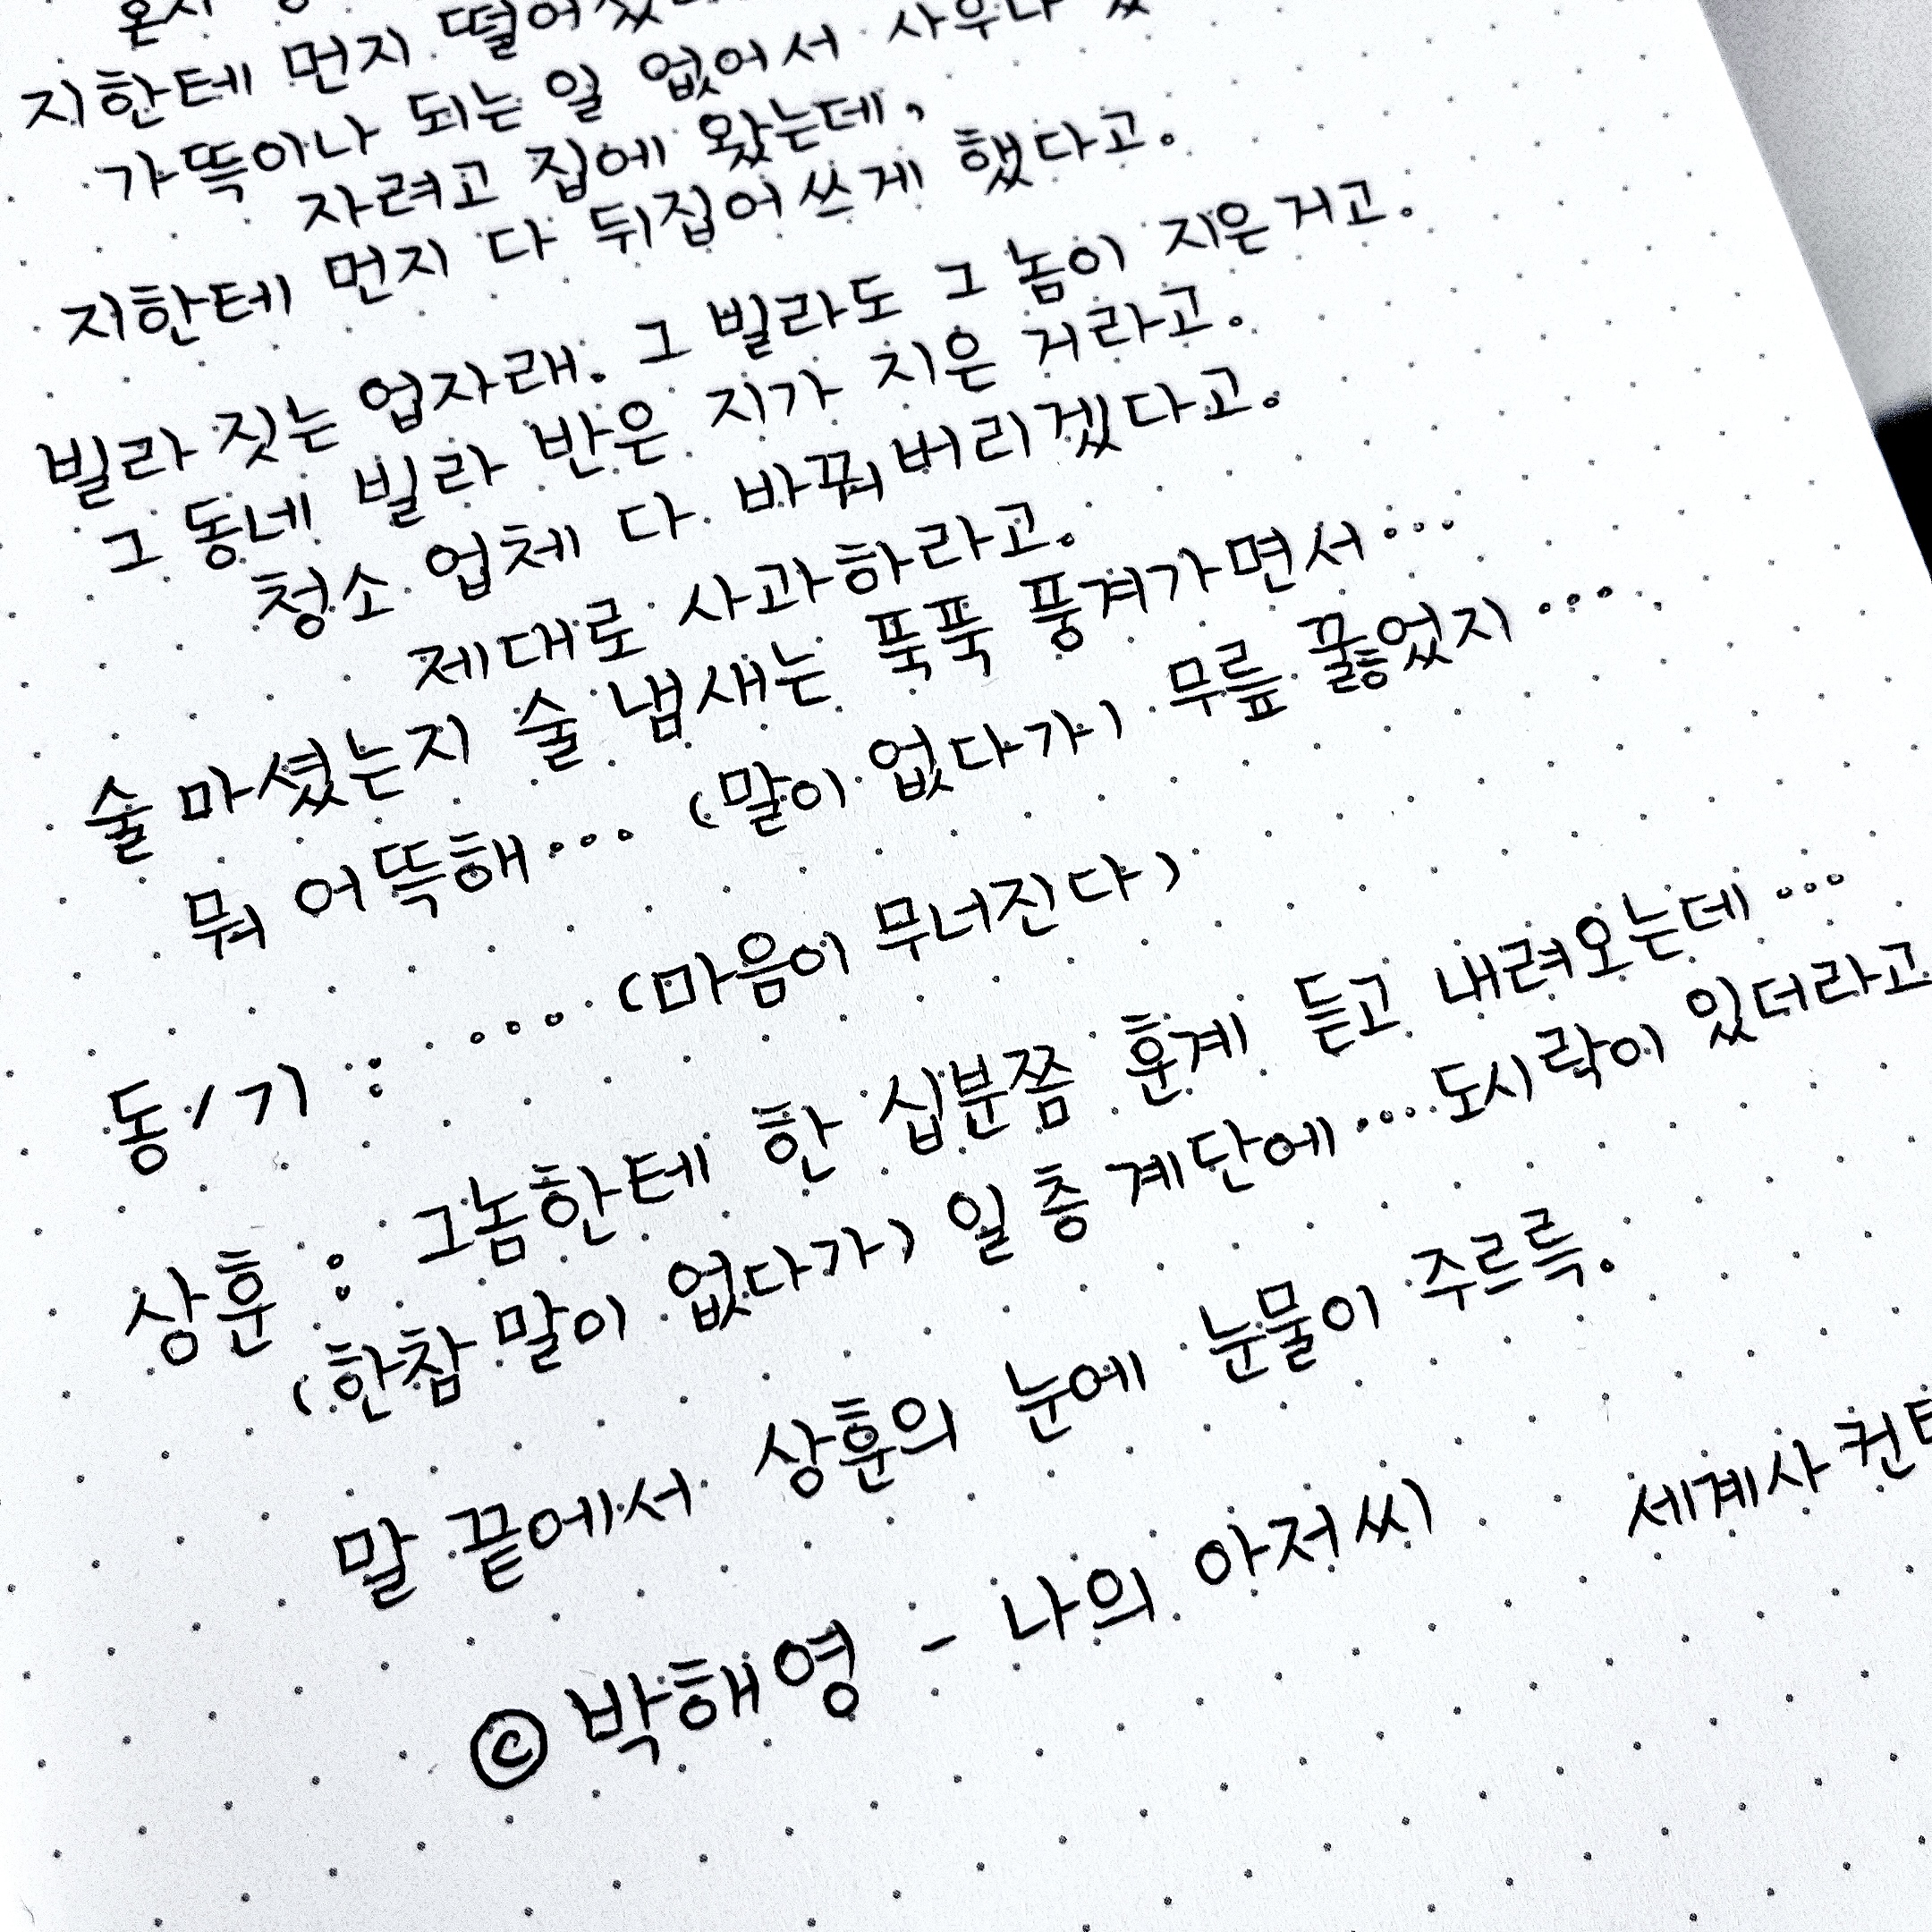 지한테 먼지 떨어
가뜩이나 되는 일 없어서 사우나
자려고 집에 왔는데,
지한테 먼지 다 뒤집어쓰게 했다고.
빌라 짓는 업자래. 그 빌라도 그 놈이 지은거고.
그 동네 빌라 반은 지가 지은 거라고.
청소 업체 다 바꿔버리겠다고.
제대로 사과하라고.
술 마셨는지 술 냄새는 푹푹 풍겨가면서...
뭐 어뜩해... (말이 없다가) 무릎 꿇었지...
동/기 : ... (마음이 무너진다)
상훈 : 그놈한테 한 십분쯤 훈계 듣고 내려오는데...
(한참 말이 없다가) 일 층 계단에...도시락이 있더라고
말 끝에서 상훈의 눈에 눈물이 주르륵.
© 박해영 - 나의 아저씨 세계사